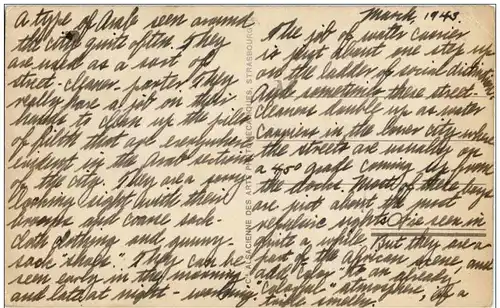 A type of Arab seen around
the city quite often. They
are used as a sort of
street-cleaner-porter. They
really have a job on their
hands to clean up the piles
of filth that are everywhere
evident in the Arab section
of the city. They are a
looking sight with their
and coarse sack-
cloth clothing and gunny-
sack "shoes". They can be
seen early in the morning
and late at night - working.
ALSACIENNE DES ARTS PHOTOMECANIQUES, STRASBOURG
March, 1943.
The job of water carrier
is just about one step up
on the ladder of social distinction
and sometimes these street-
cleaners double up as water
carriers in the lower city where
the streets are usually on
a 40° grade coming up from
the docks. Most of these guys
are just about the most
repulsive sights I've seen in
quite a while. But they are a
part of the African scene, and
add color to an already
"colorful" atmosphere, if a